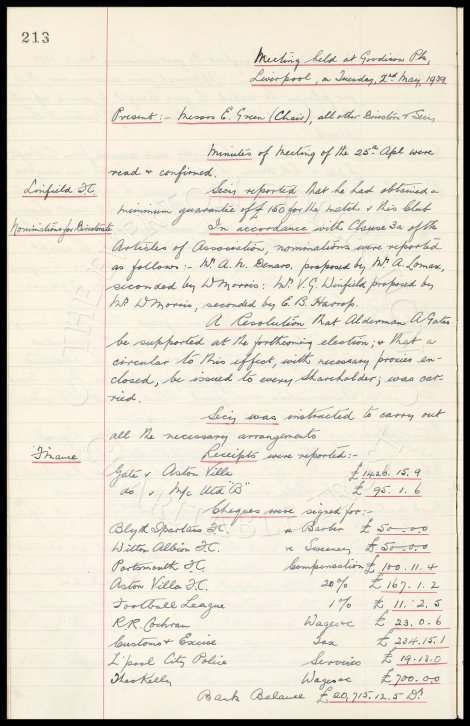 213
Meeting held at Goodison Pk,
Liverpool, on Tuesday, 2nd May, 1939
Present:- Messrs E. Green (Chair), all other Directors & Secy
Minutes of Meeting of the 25th Apl were
read & confirmed.
Linfield F.C.
Secy reported that he had obtained a
minimum guarantee of £150 for the match v this Club
Nominations for Directorate
In accordance with Clause 3a of the
Articles of Association, nominations were reported
as follows:- Mr A. N. Denaro, proposed by Mr A. Lomax,
seconded by W Morris: Mr V.G. Winfield proposed by
Mr W Morris, seconded by E. B. Harrop.
A Resolution that Alderman A Gates
be supported at the forthcoming election; & that a
circular to this effect, with necessary proxies en-
closed, be issued to every Shareholder; was car-
ried.
Secy was instructed to carry out
all the necessary arrangements
Finance
Receipts were reported:-
Gate v Aston Villa £1426.15.9
do v M/c Utd "B" £95.1.6
Cheques were signed for:-
Blyth Spartans F.C. re Barber £50.0.0
Witton Albion F.C. re Sweeney £50.0.0
Portsmouth F.C. Compensation £100.11.4
Aston Villa F.C. 20% £167.1.2
Football League 1% £11.2.5
R.R. Cochran Wages &c £23.0.6
Customs & Excise Tax £234.15.1
L'pool City Police Services £19.13.0
Theo Kelly Wages &c £700.0.0
Bank Balance £20,715.12.5 Dr